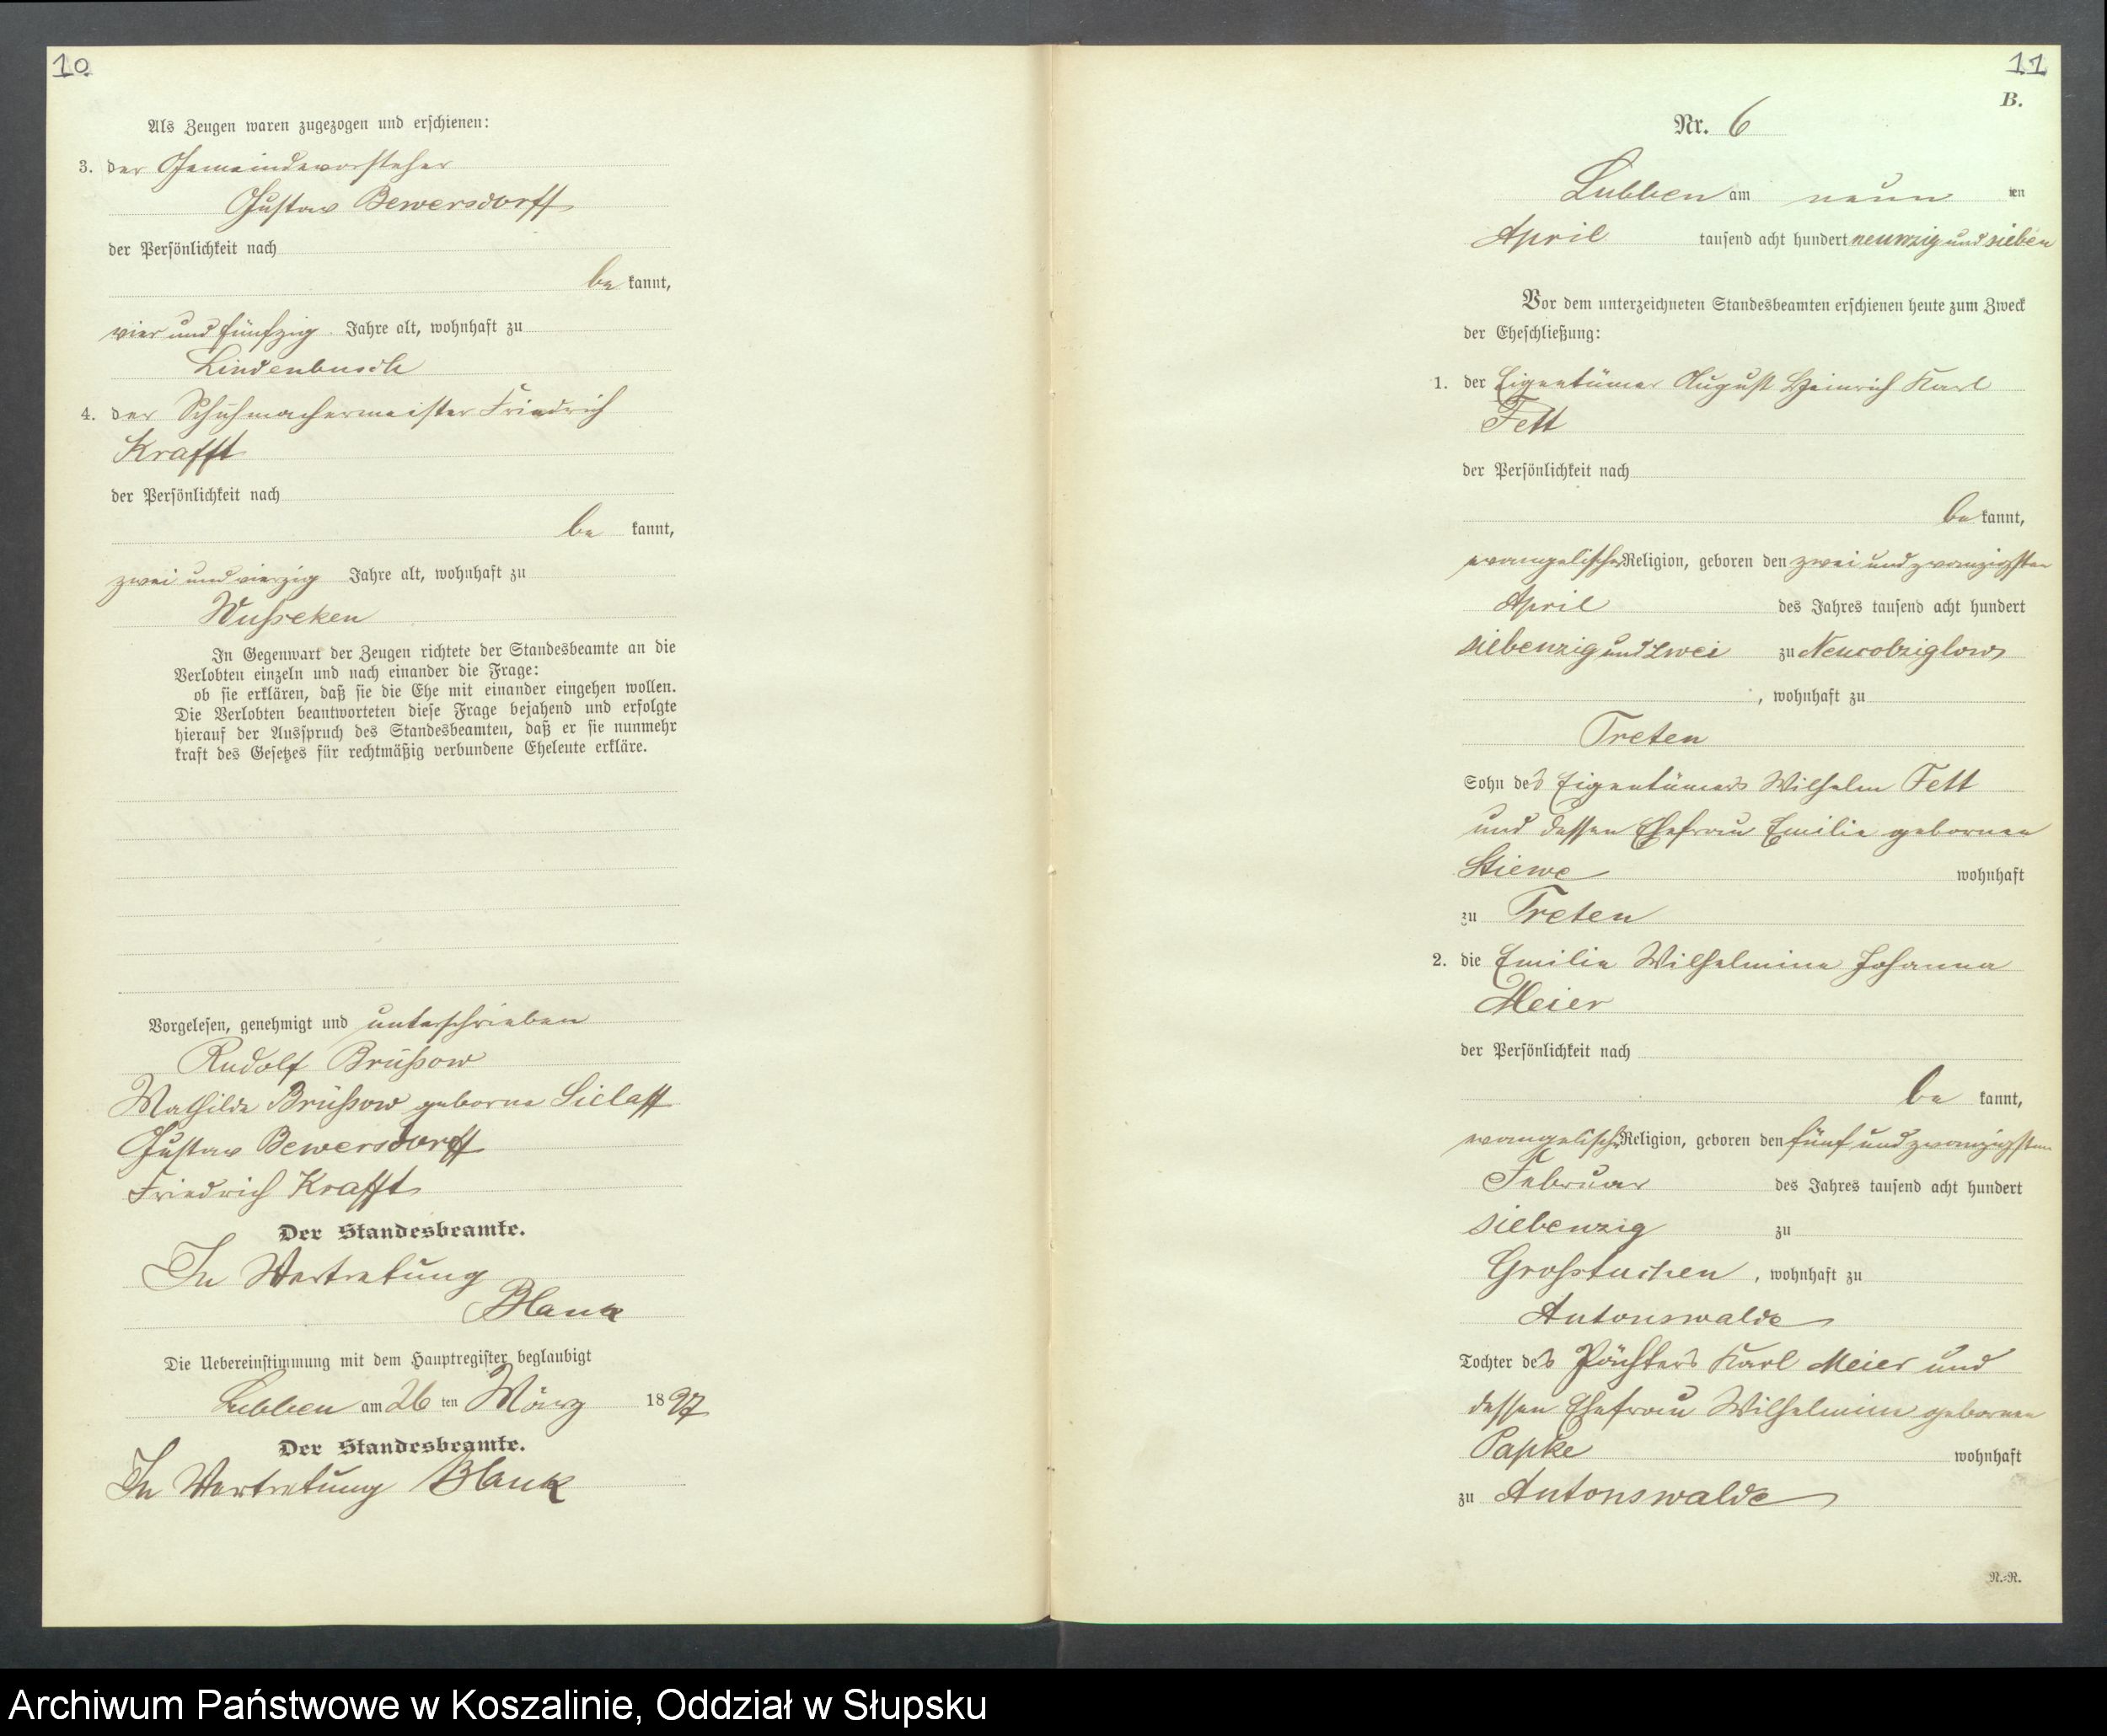 10
Als Zeugen waren zugezogen und erschienen:
3. der Gemeindevorsteher
Gustav Bewersdorff
der Persönlichkeit nach
be kannt,
vier und fünfzig Jahre alt, wohnhaft zu
Lindenbusch
4. der Schuhmachermeister Friedrich
Krafft
der Persönlichkeit nach
be kannt,
zwei und vierzig Jahre alt, wohnhaft zu
Wußeken
In Gegenwart der Zeugen richtete der Standesbeamte an die
Verlobten einzeln und nach einander die Frage:
ob sie erklären, daß sie die Ehe mit einander eingehen wollen.
Die Verlobten beantworteten diese Frage bejahend und erfolgte
hierauf der Ausspruch des Standesbeamten, daß er sie nunmehr
kraft des Gesetzes für rechtmäßig verbundene Eheleute erkläre.
Vorgelesen, genehmigt und unterschrieben
Rudolf Brüßow
Mathilde Brüßow geborne Sielaff
Gustav Bewersdorff
Friedrich Krafft
Der Standesbeamte.
In Vertretung
Blank
Die Uebereinstimmung mit dem Hauptregister beglaubigt
Lubben am 26 ten März 1897
Der Standesbeamte.
In Vertretung Blank
11
B.
Nr. 6
Lubben am neun ten
April tausend acht hundert neunzig und sieben
Vor dem unterzeichneten Standesbeamten erschienen heute zum Zweck
der Eheschließung:
1. der Eigentümer August Heinrich Karl
Fett
der Persönlichkeit nach
be kannt,
evangelischer Religion, geboren den zwei und zwanzigsten
April des Jahres tausend acht hundert
siebenzig und zwei zu Neucobziglow
, wohnhaft zu
Treten
Sohn des Eigentümers Wilhelm Fett
und dessen Ehefrau Emilie gebornen
Stiewe wohnhaft
zu Treten
2. die Emilie Wilhelmine Johanna
Meier
der Persönlichkeit nach
be kannt,
evangelischer Religion, geboren den fünf und zwanzigsten
Februar des Jahres tausend acht hundert
siebenzig zu
Großtuchen, wohnhaft zu
Antonswalde
Tochter des Pächters Karl Meier und
dessen Ehefrau Wilhelmine gebornen
Papke wohnhaft
zu Antonswalde
N.=R.
Archiwum Państwowe w Koszalinie, Oddział w Słupsku